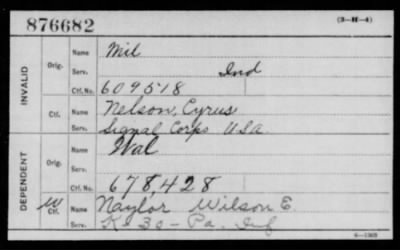 876682 (3-H-4)
INVALID Orig. Name Mil
Serv. Ind
Ctf. No. 609518
Ctf. Name Nelson, Cyrus
Serv. Signal Corps U.S.A.
DEPENDENT Orig. Name Wal
Serv.
Ctf. No. 678,428
W Ctf. Name Naylor Wilson E.
Serv. K 30 - Pa. Inf